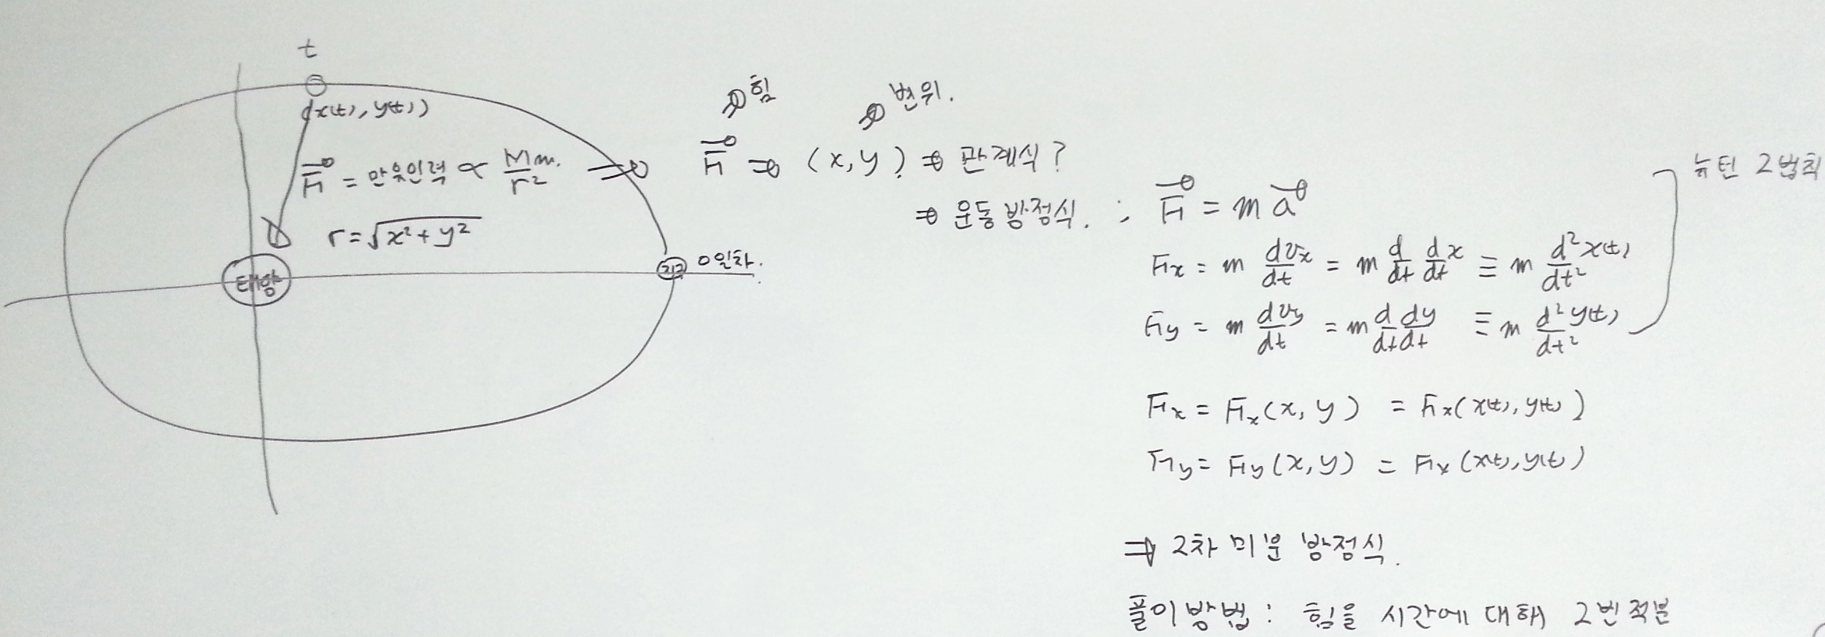 t
(x(t), y(t))
F⃗ = 만유인력 ∝ Mm/r² ⇒
r = √x²+y²
태양
지구 0일차.
힘 변위.
F⃗ ⇒ (x, y) ⇒ 관계식?
⇒ 운동 방정식. ; F⃗ = m a⃗
뉴턴 2법칙
Fx = m dvx/dt = m d/dt dx/dt ≡ m d²x(t)/dt²
Fy = m dvy/dt = m d/dt dy/dt ≡ m d²y(t)/dt²
Fx = Fx(x, y) = Fx(x(t), y(t))
Fy = Fy(x, y) = Fx(x(t), y(t))
⇒ 2차 미분 방정식.
풀이방법 : 힘을 시간에 대해 2번적분